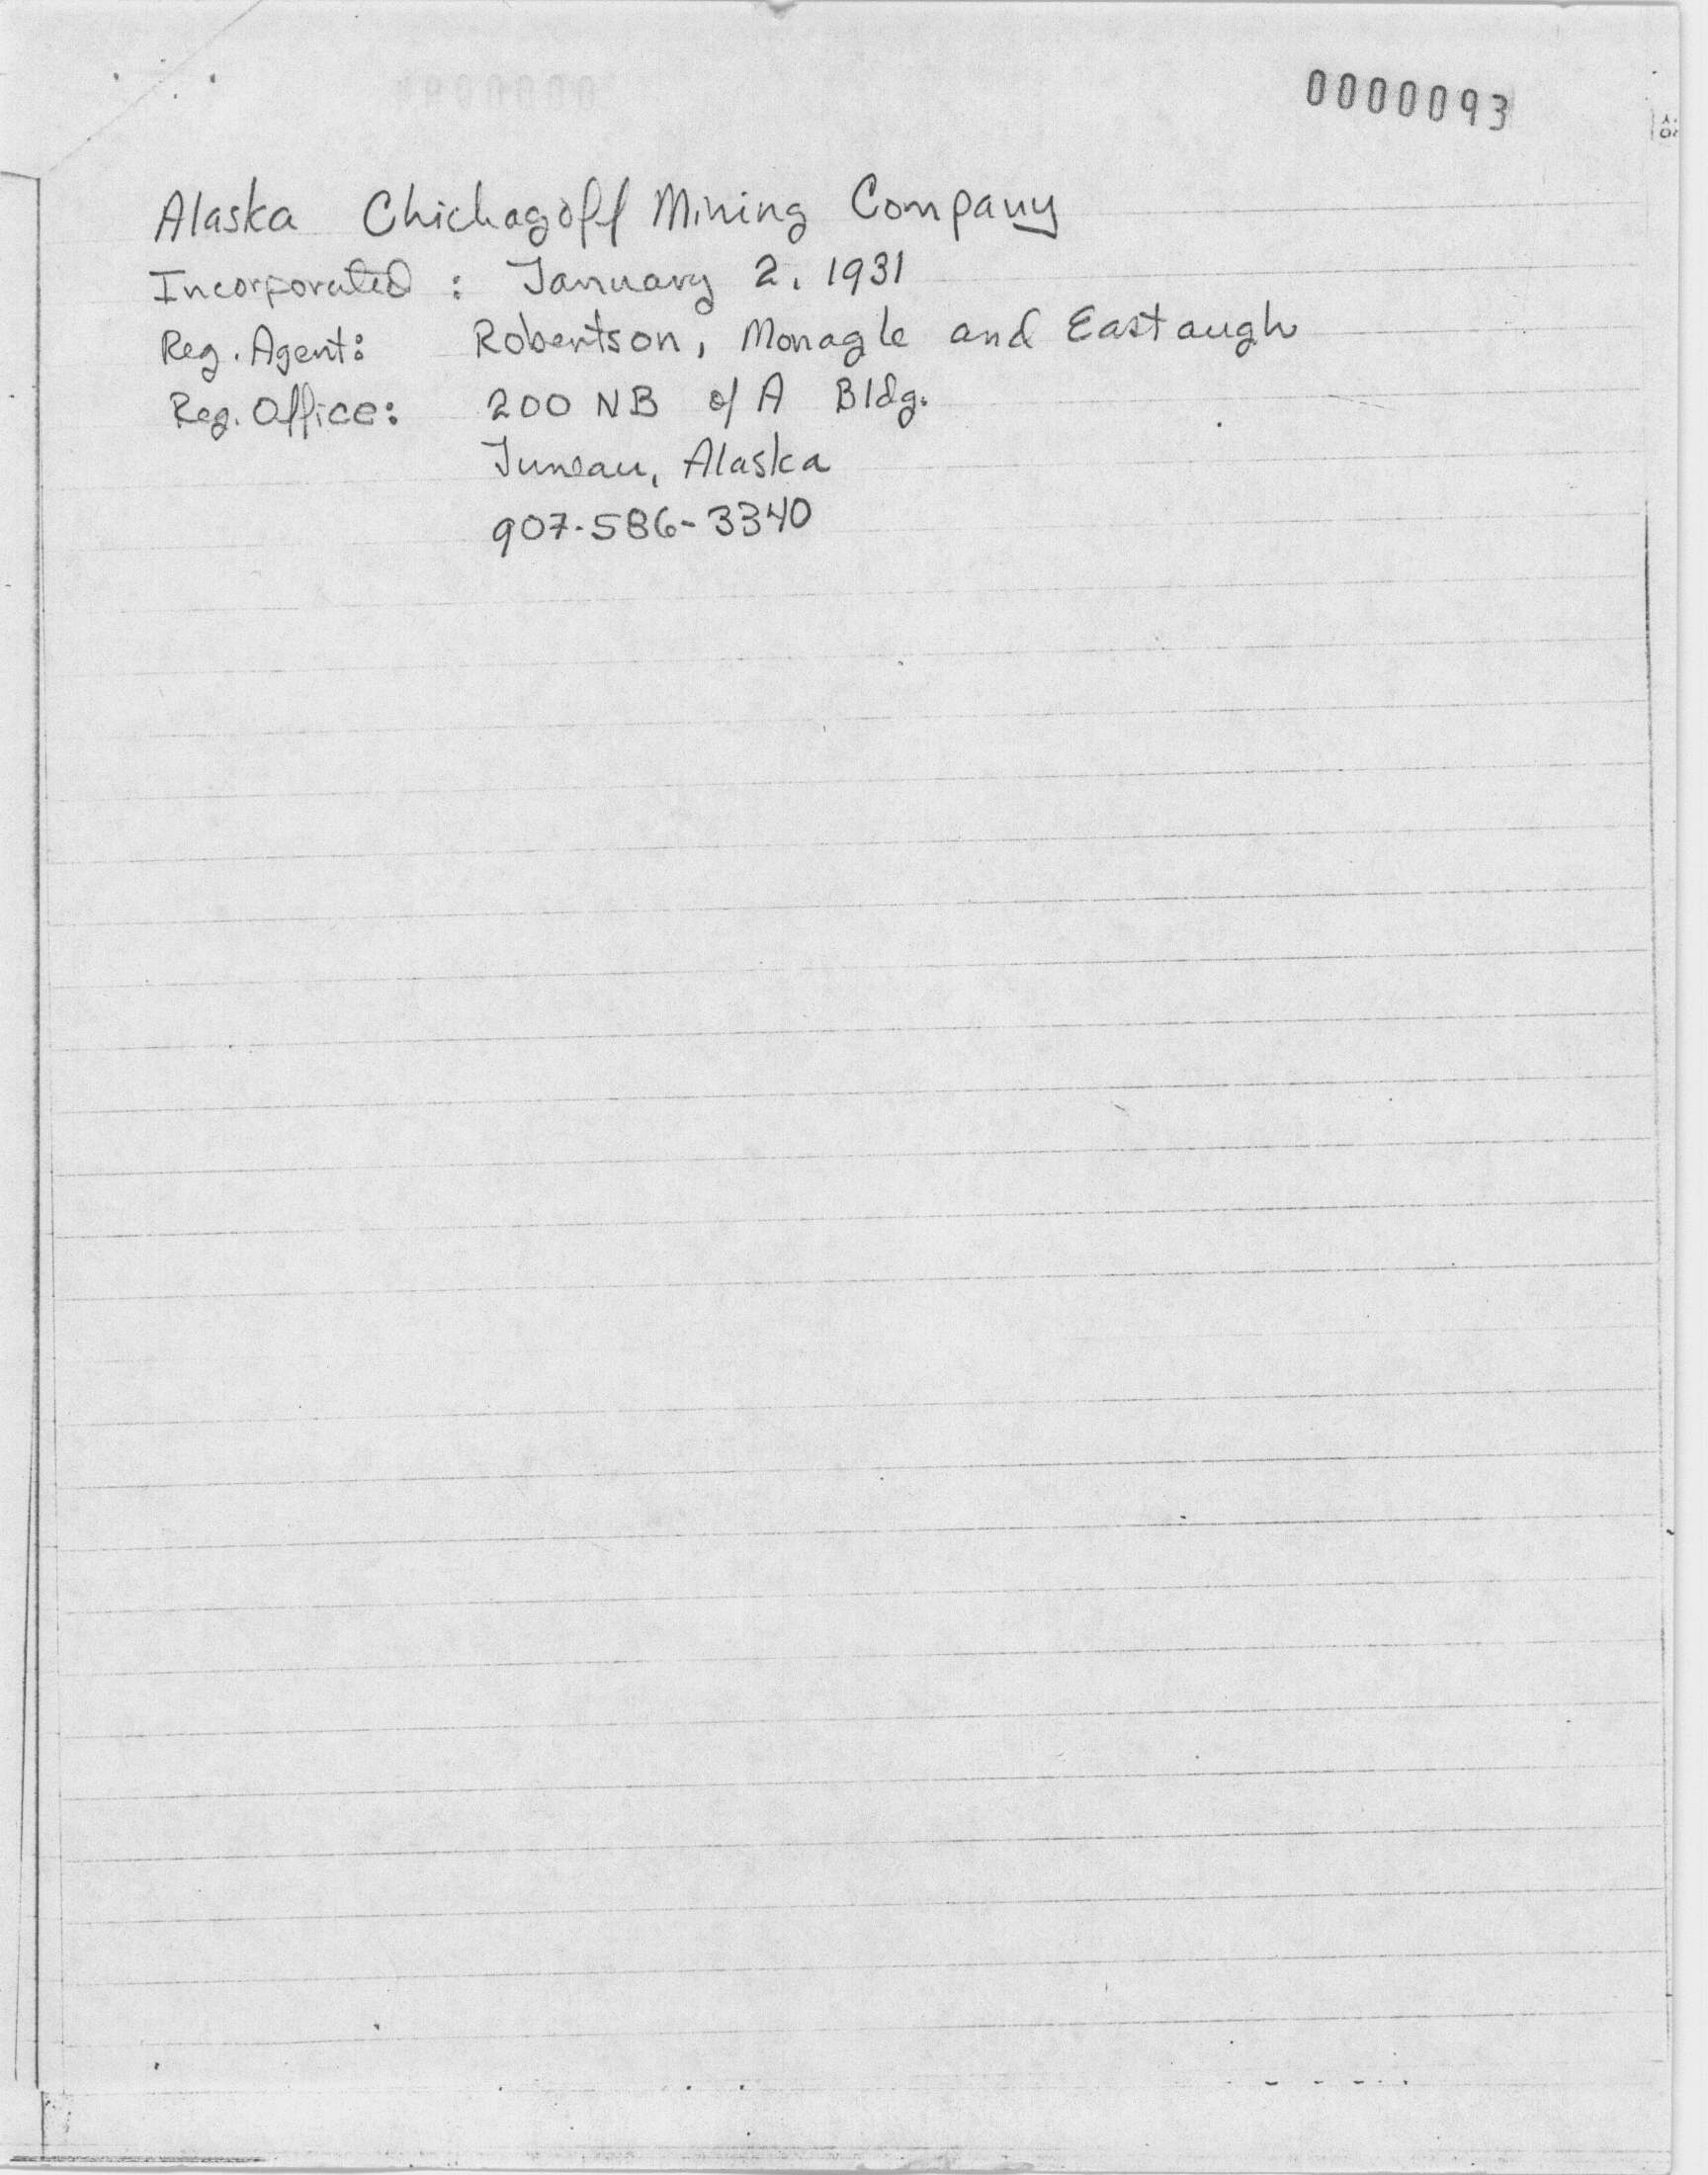 0000093
Alaska Chichagoff Mining Company
Incorporated : January 2, 1931
Reg. Agent: Robertson, Monagle and Eastaugh
Reg. Office: 200 NB of A Bldg.
Juneau, Alaska
907-586-3340